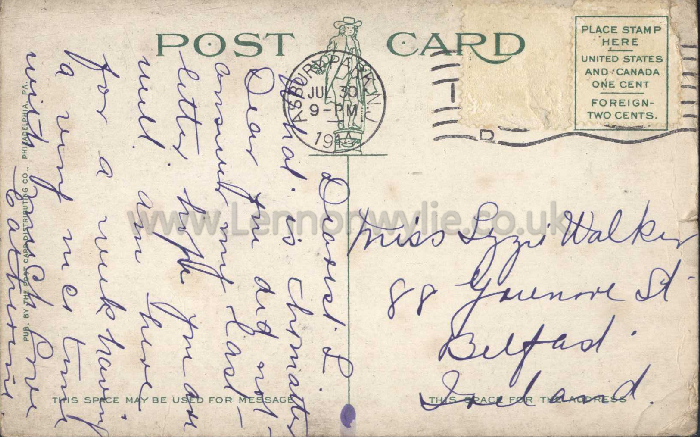 POST CARD
ASBURY PARK, N.J.
JUL 30
9-PM
1914
PLACE STAMP
HERE
UNITED STATES
AND CANADA
ONE CENT
FOREIGN-
TWO CENTS.
Dearest L
What is the matter
Dear you did not
answer my last
letter hope you are
well am here
for a week having
a very nice time
with much love
Catherine
Miss Lizzie Walker
88 Greenore St
Belfast
Ireland.
PUB. BY THE POST CARD DISTRIBUTING CO., PHILADELPHIA, PA.
THIS SPACE MAY BE USED FOR MESSAGE
THIS SPACE FOR THE ADDRESS
www.Lennonwylie.co.uk